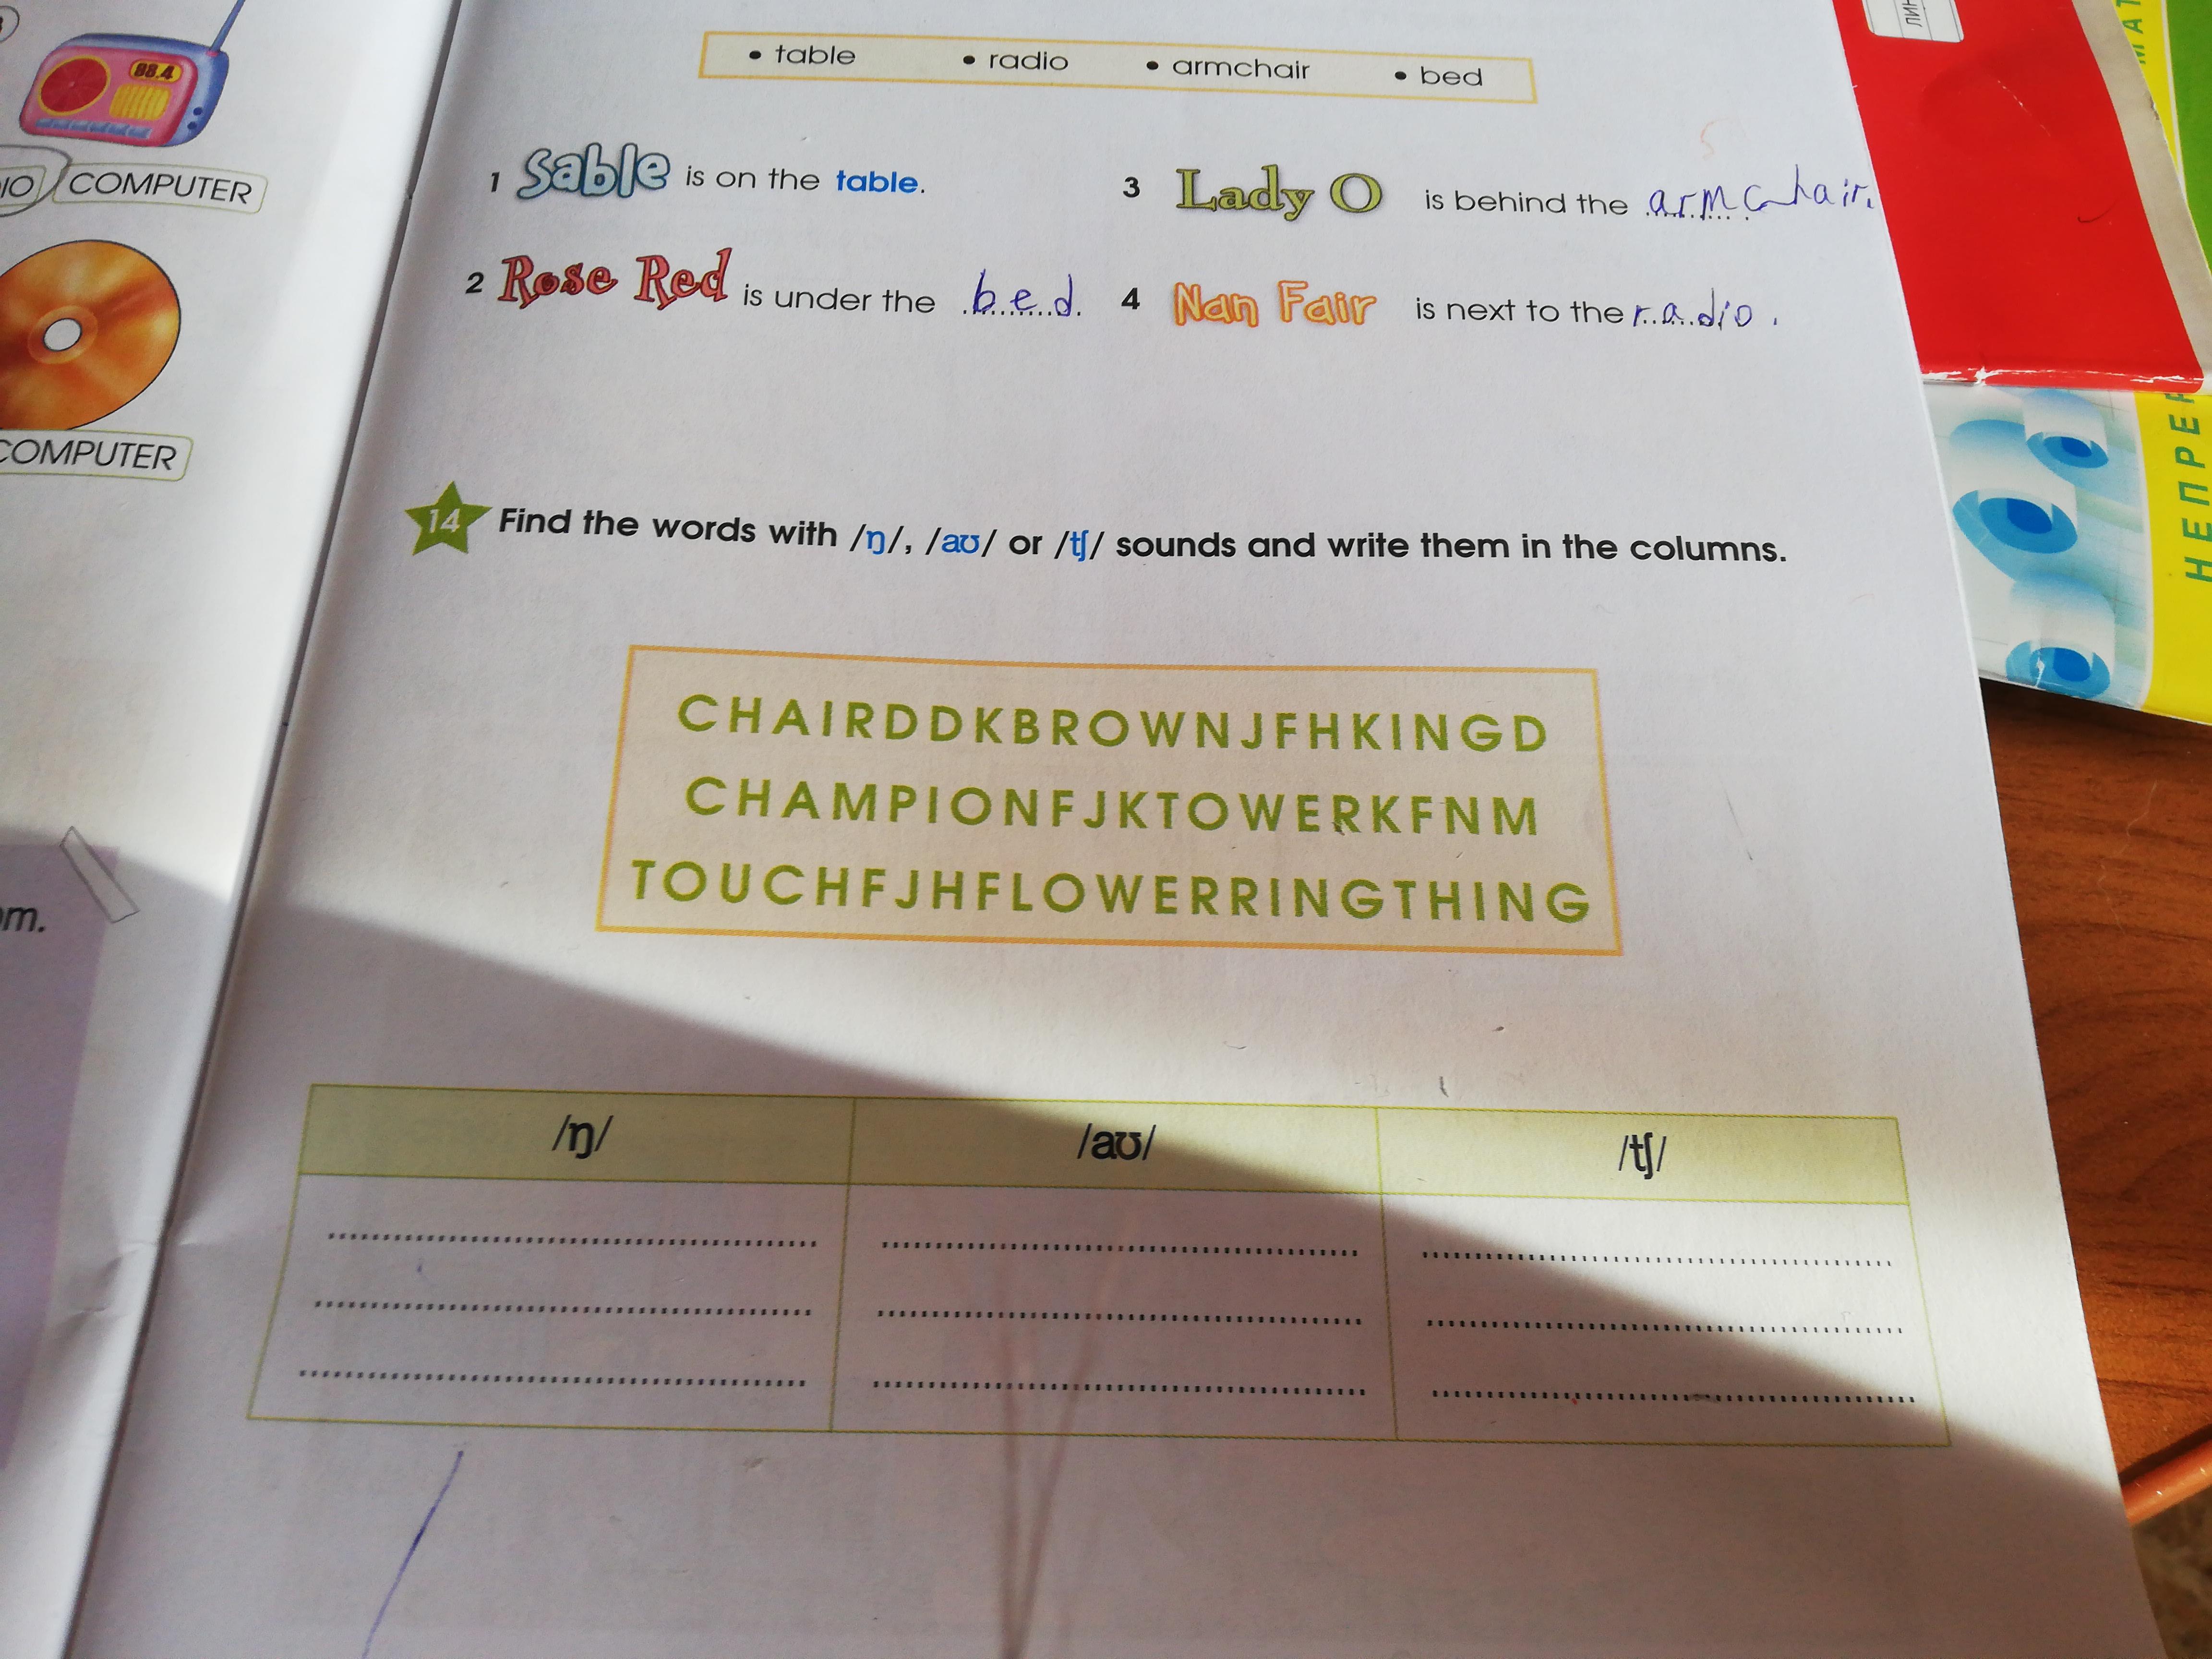 88.4
IO
COMPUTER
COMPUTER
om.
• table • radio • armchair • bed
1 Sable is on the table.
2 Rose Red is under the bed.
3 Lady O is behind the armchair.
4 Nan Fair is next to the radio.
14 Find the words with /ŋ/, /aʊ/ or /tʃ/ sounds and write them in the columns.
CHAIRDDKBROWNJFHKINGD
CHAMPIONFJKTOWERKFNM
TOUCHFJHFLOWERRINGTHING
/ŋ/ /aʊ/ /tʃ/
НЕПРЕ